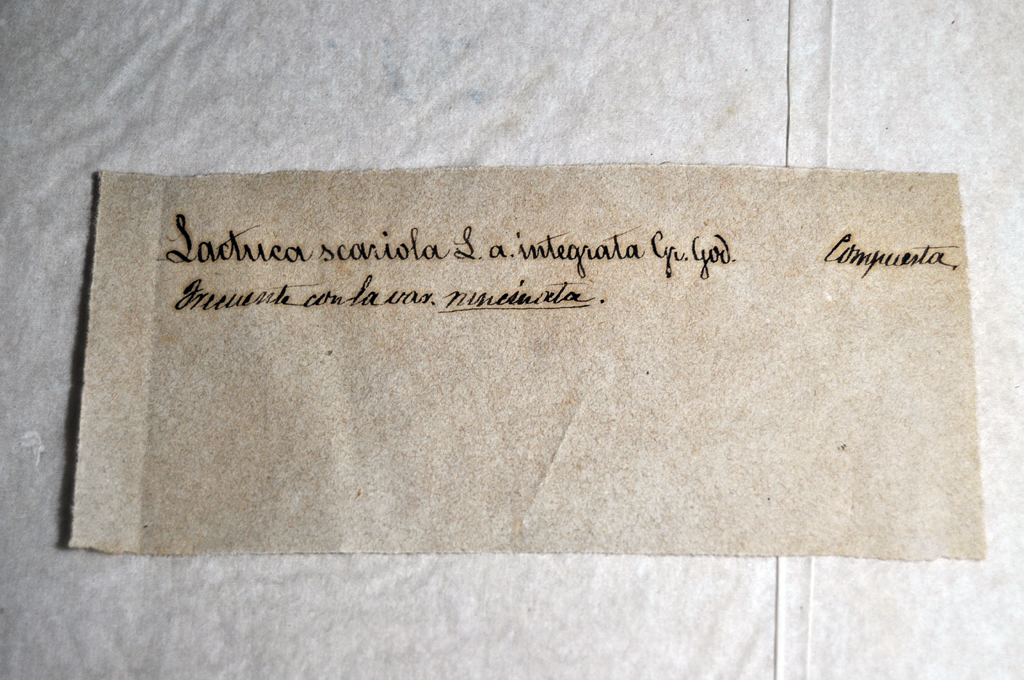 Lactuca scariola L. a. integrata Gr. God. Compuesta.
Frecuente con la var. runcinata.